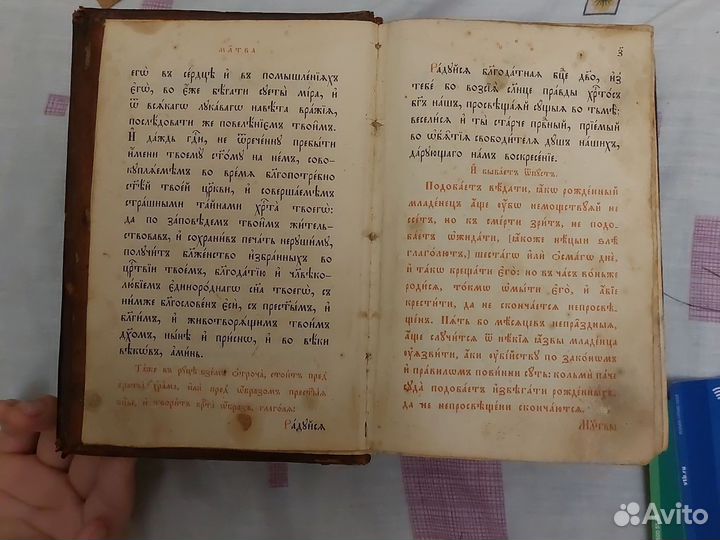 МЛ҃ТВА
єгѡ̀ въ се́рдцѣ и҆ въ помышле́нїѧхъ
є҆гѡ̀, во є҆́же бѣ́гати сꙋеты̀ мі́ра, и҆
ѿ всѧ́кагѡ лꙋка́вагѡ навѣ́та вра́жїѧ,
послѣ́довати же повелѣ́нїємъ твои̑мъ.
И҆ да́ждь гдⷭ҇и, не ѿрече́ннꙋ пребы́ти
и҆́мени твоемꙋ̀ ст҃о́мꙋ на не́мъ, совокꙋ-
плѧ́емѣмъ во вре́мѧ бл҃гопотре́бно
ст҃ѣ́й твое́й цр҃кви, и҆ соверша́емѣмъ
стра́шными та́йнами хрⷭ҇та̀ твоегѡ̀:
да по за́повѣдемъ твои̑мъ жи́тель-
ствовавъ, и҆ сохрани́въ печа́ть нерꙋши́мꙋ,
полꙋчи́тъ бл҃же́нство и҆збра́нныхъ во
црⷭ҇твїи твое́мъ, бл҃года́тїю и҆ чл҃вѣко-
лю́бїемъ є҆диноро́днагѡ сн҃а твоегѡ̀, съ
ни́мже бл҃гослове́нъ є҆сѝ, съ прест҃ы́мъ, и҆
бл҃ги́мъ, и҆ животворѧ́щимъ твои́мъ
дх҃омъ, ны́нѣ и҆ при́снѡ, и҆ во вѣ́ки
вѣкѡ́въ, а҆ми́нь.
Та́же въ рꙋ́цѣ взе́мъ ѻ҆троча̀, стои́тъ пред̾
враты̀ хра́ма, и҆лѝ пред̾ ѡ҆́бразомъ прест҃ы́ѧ
бцⷣы, и҆ твори́тъ крⷭ҇та̀ ѡ҆́бразъ, глаго́лѧ:
Ра́дꙋйсѧ
з҃
Ра́дꙋйсѧ бл҃года́тнаѧ бцⷣе дв҃о, и҆з̾
тебе́ бо возсїѧ̀ сл҃нце пра́вды хрⷭ҇то́съ
бг҃ъ на́шъ, просвѣща́ѧй сꙋ́щыѧ во тьмѣ̀:
весели́сѧ и҆ ты̀ ста́рче првⷣный, прїе́мый
во ѡ҆б̾ѧ́тїѧ свободи́телѧ дꙋ́шъ на́шихъ,
да́рꙋющаго на́мъ воскресе́нїе.
И҆ быва́етъ ѿпꙋ́стъ.
Подоба́етъ вѣ́дати, ꙗ҆́кѡ рожде́нный
младе́нецъ а҆́ще ᲂу҆́бѡ немощствꙋ́ѧй не
ссе́тъ, но къ сме́рти зри́тъ, не подо-
ба́етъ ѡ҆жида́ти, (ꙗ҆́коже нѣ́цыи ѕлѣ̀
глаго́лютъ,) шеста́гѡ и҆лѝ ѻ҆сма́гѡ днѐ,
и҆ та́кѡ креща́ти є҆го̀: но въ ча́съ во́ньже
роди́сѧ, то́кмѡ ѡ҆мы́ти є҆го̀, и҆ а҆́бїе
крести́ти, да не сконча́етсѧ непросвѣ-
ще́нъ. Пѧ́ть бо мѣ́сѧцевъ непра́здныѧ,
а҆́ще слꙋчи́тсѧ ѿ нѣ́кїѧ ꙗ҆́звы младе́нца
ᲂу҆ѧзви́ти, а҆́ки ᲂу҆бі́йствꙋ по зако́нѡмъ
и҆ пра́вилѡмъ пови́нни сꙋ́ть: кольмѝ па́че
сꙋда̀ подоба́етъ и҆збѣга́ти рожде́нныхъ,
да не непросвѣще́ни сконча́ютсѧ.
Мл҃твы
vtb.ru
Avito